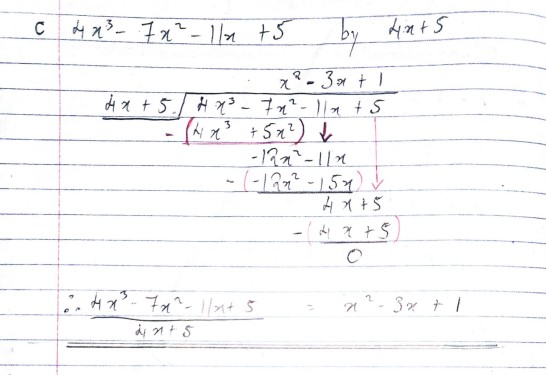 c 4x³ - 7x² - 11x + 5 by 4x+5
x² - 3x + 1
4x + 5 / 4x³ - 7x² - 11x + 5
- (4x³ + 5x²) ↓
-12x² - 11x
- (-12x² - 15x)
4x + 5
- (4x + 5)
0
∴ 4x³ - 7x² - 11x + 5 = x² - 3x + 1
4x + 5